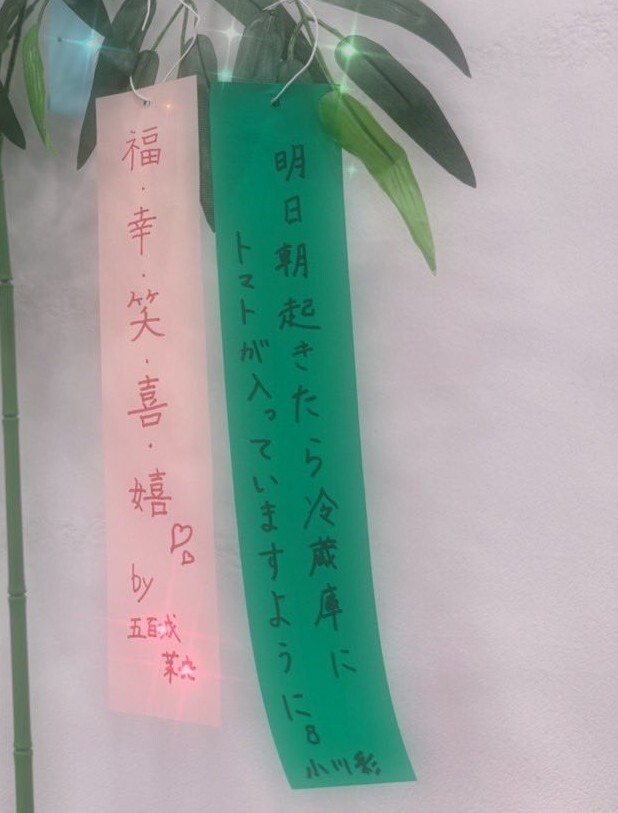 福・幸・笑・喜・嬉
by
五百城
茉央
明日朝起きたら冷蔵庫に
トマトが入っていますように。
小川彩